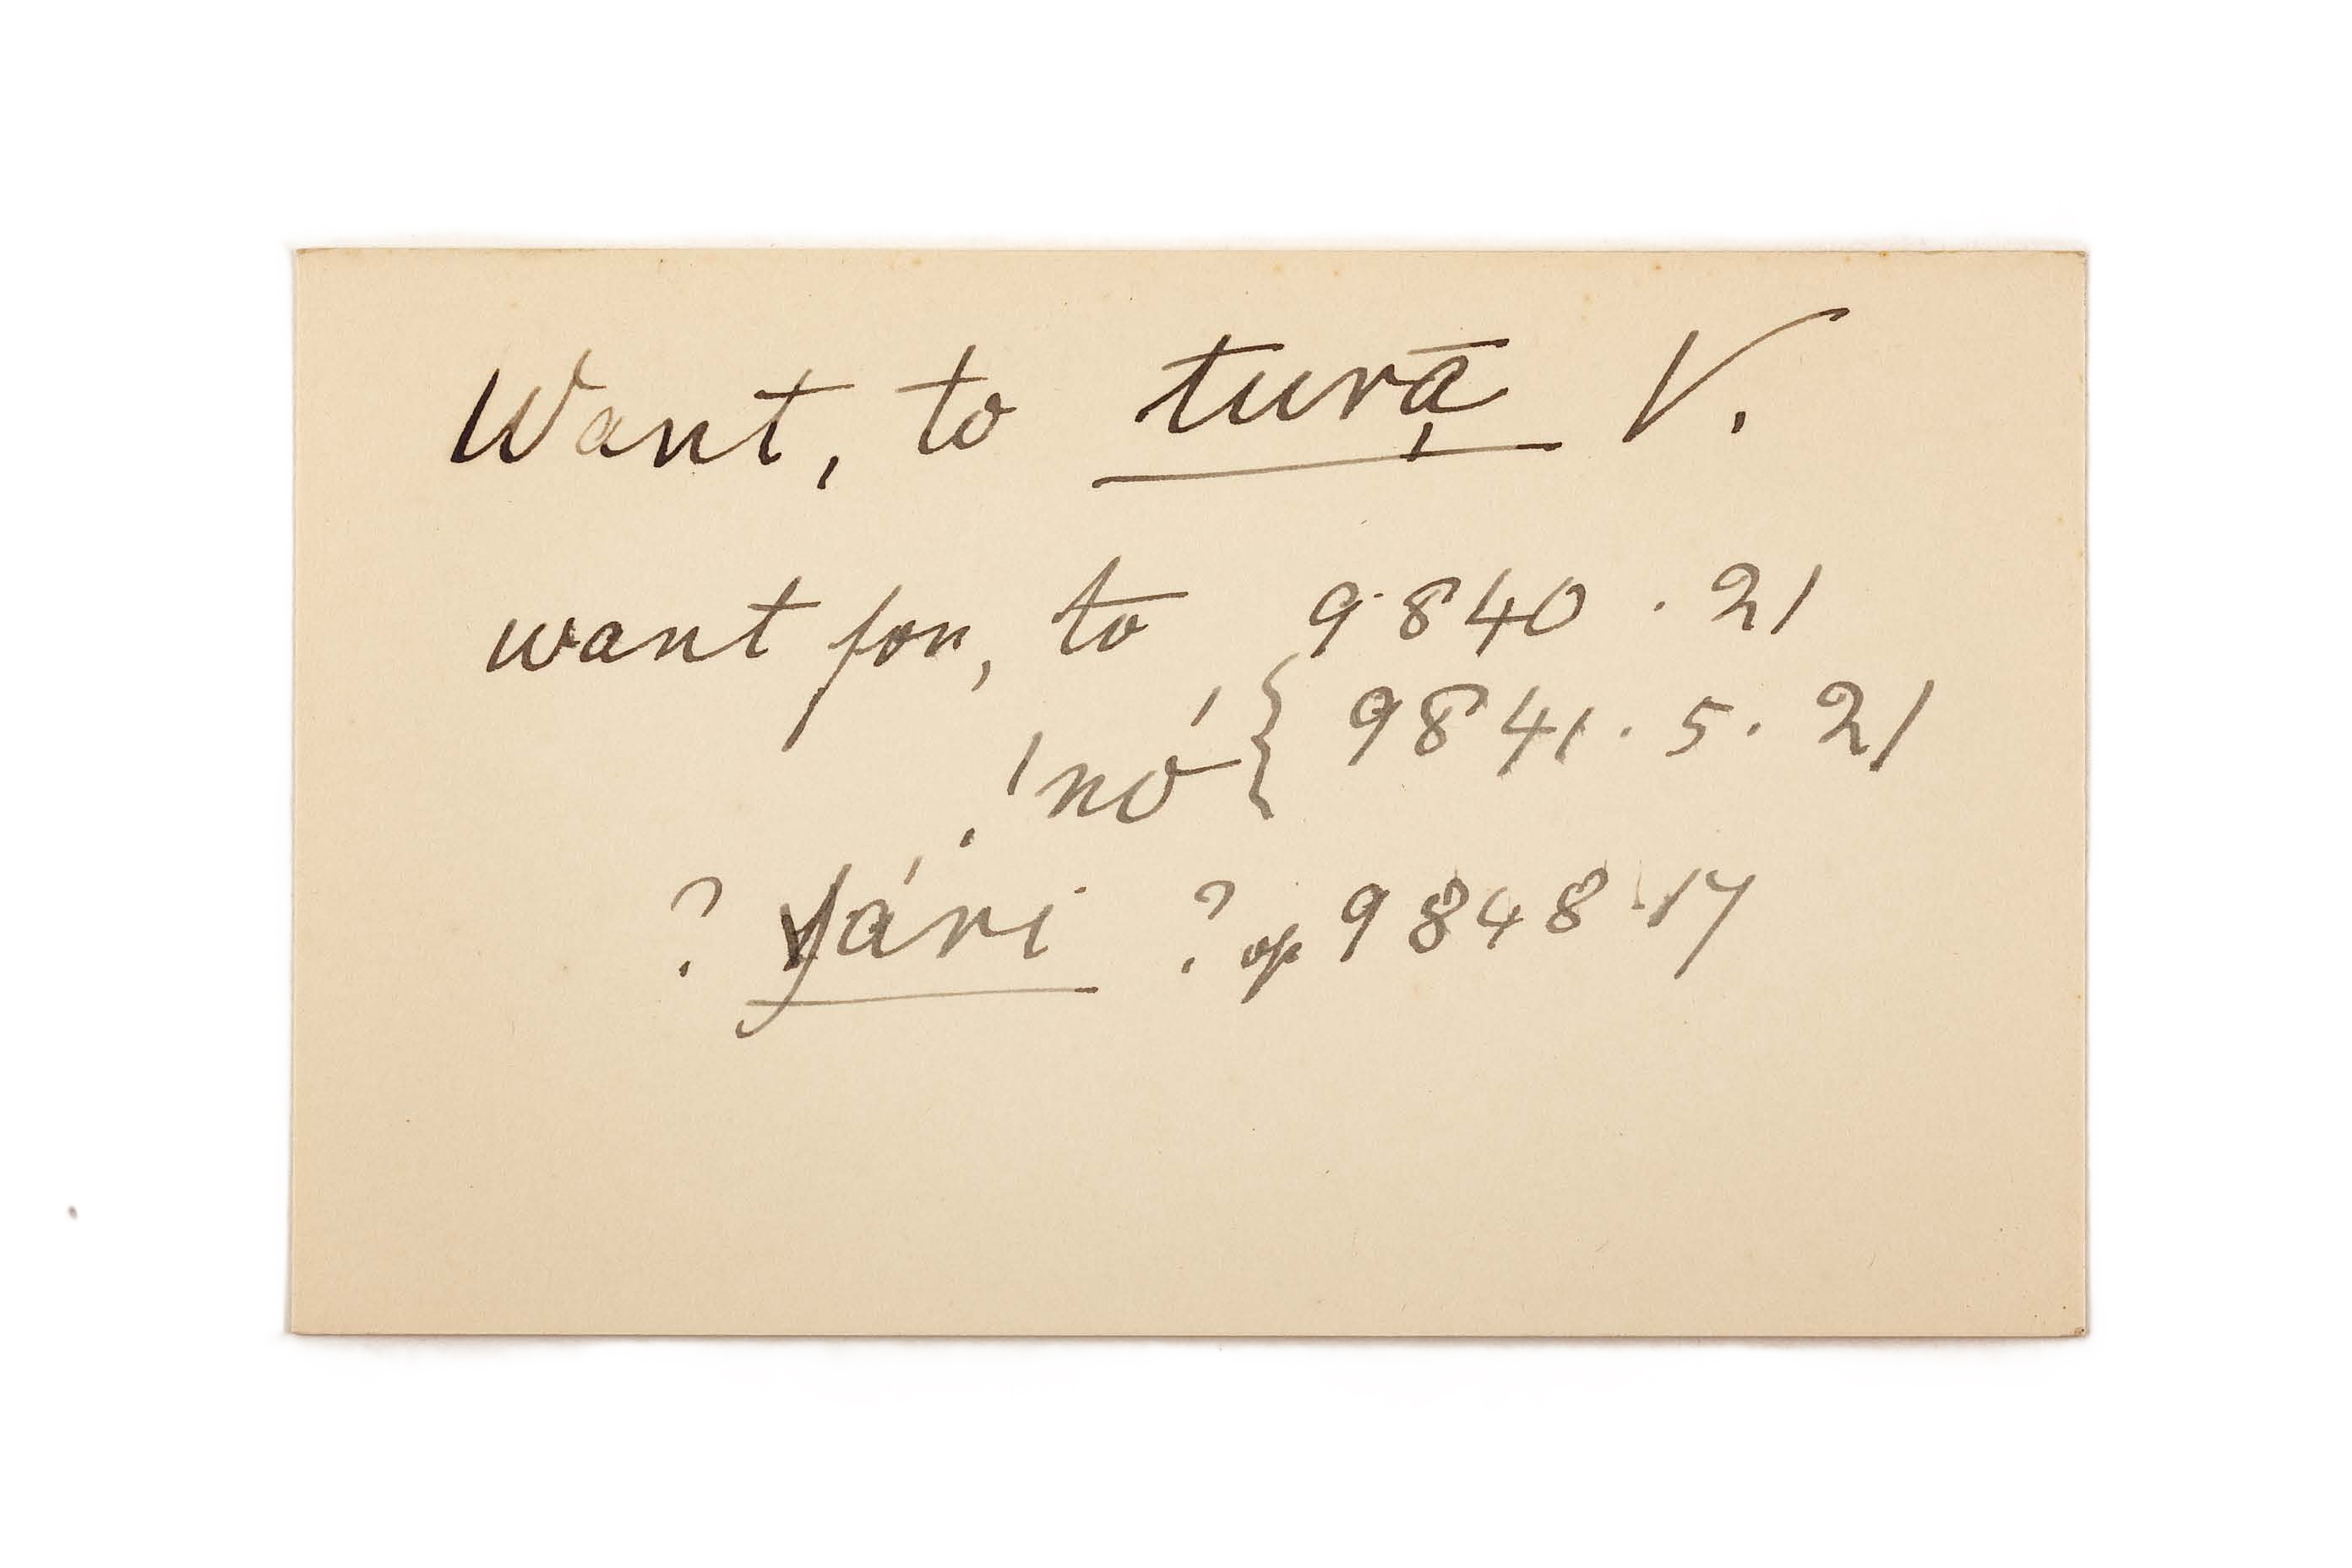 Want, to turā̦ V.
want for, to 9840 . 21
!nó { 9841 . 5 . 21
? yári ? op 9848 . 17